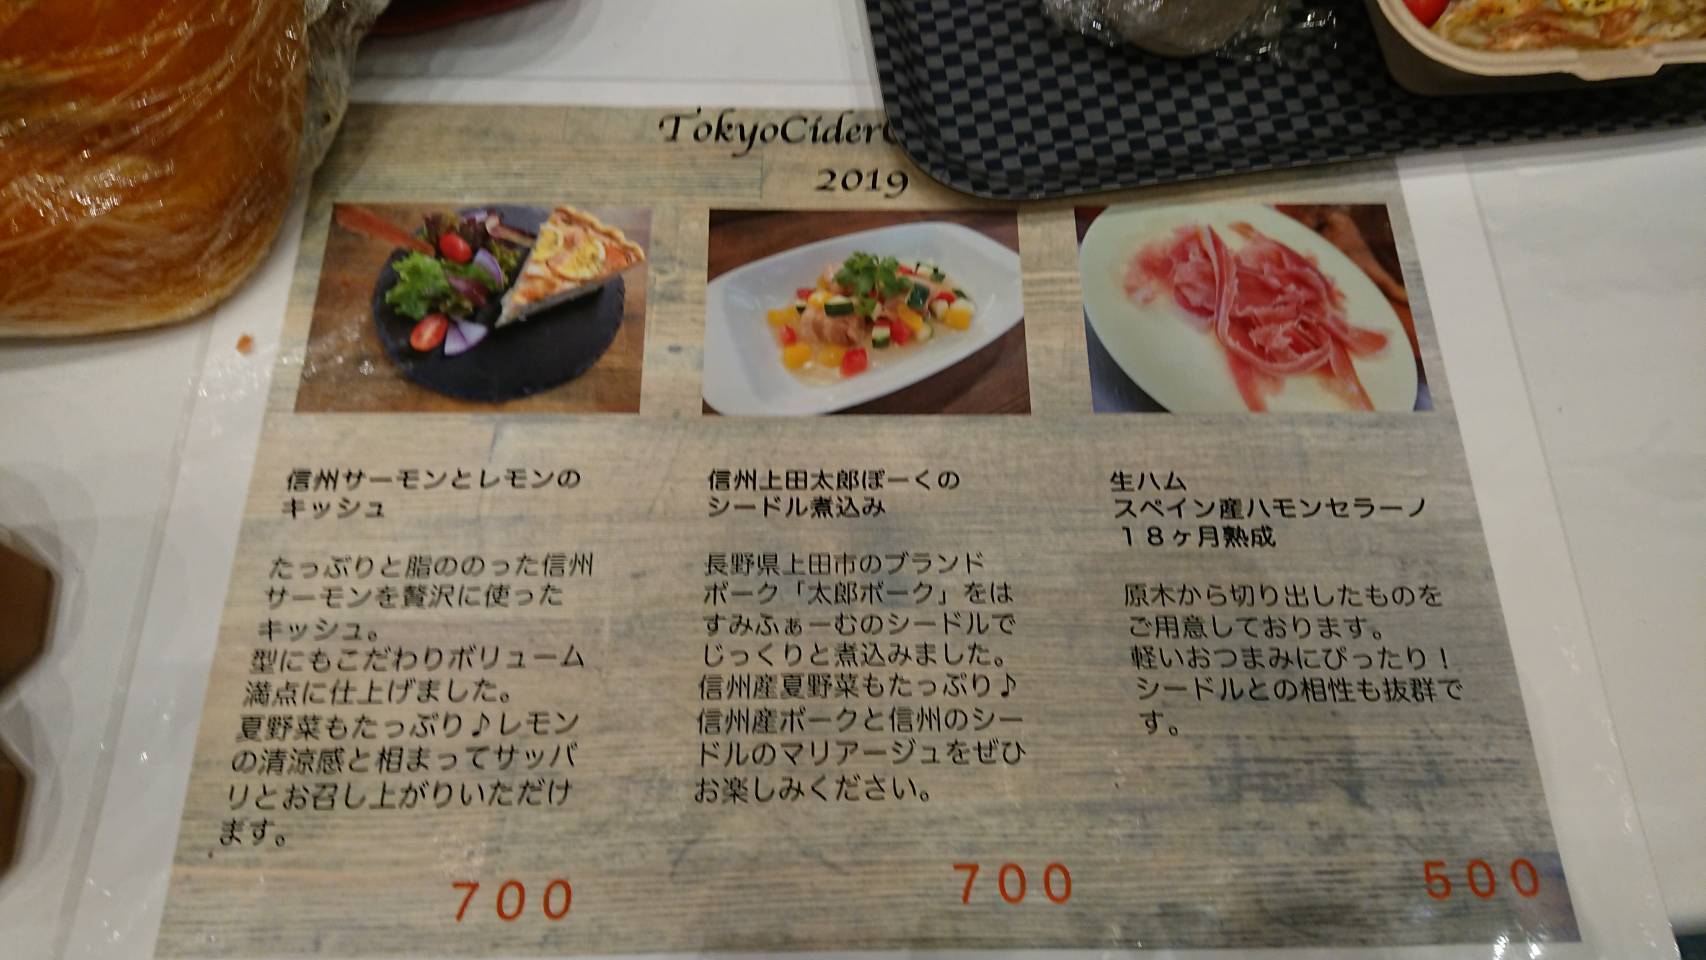 TokyoCider
2019
信州サーモンとレモンの
キッシュ
たっぷりと脂ののった信州
サーモンを贅沢に使った
キッシュ。
型にもこだわりボリューム
満点に仕上げました。
夏野菜もたっぷり♪レモン
の清涼感と相まってサッパ
リとお召し上がりいただけ
ます。
700
信州上田太郎ぽーくの
シードル煮込み
長野県上田市のブランド
ポーク「太郎ポーク」をは
すみふぁーむのシードルで
じっくりと煮込みました。
信州産夏野菜もたっぷり♪
信州産ポークと信州のシー
ドルのマリアージュをぜひ
お楽しみください。
700
生ハム
スペイン産ハモンセラーノ
18ヶ月熟成
原木から切り出したものを
ご用意しております。
軽いおつまみにぴったり！
シードルとの相性も抜群で
す。
500